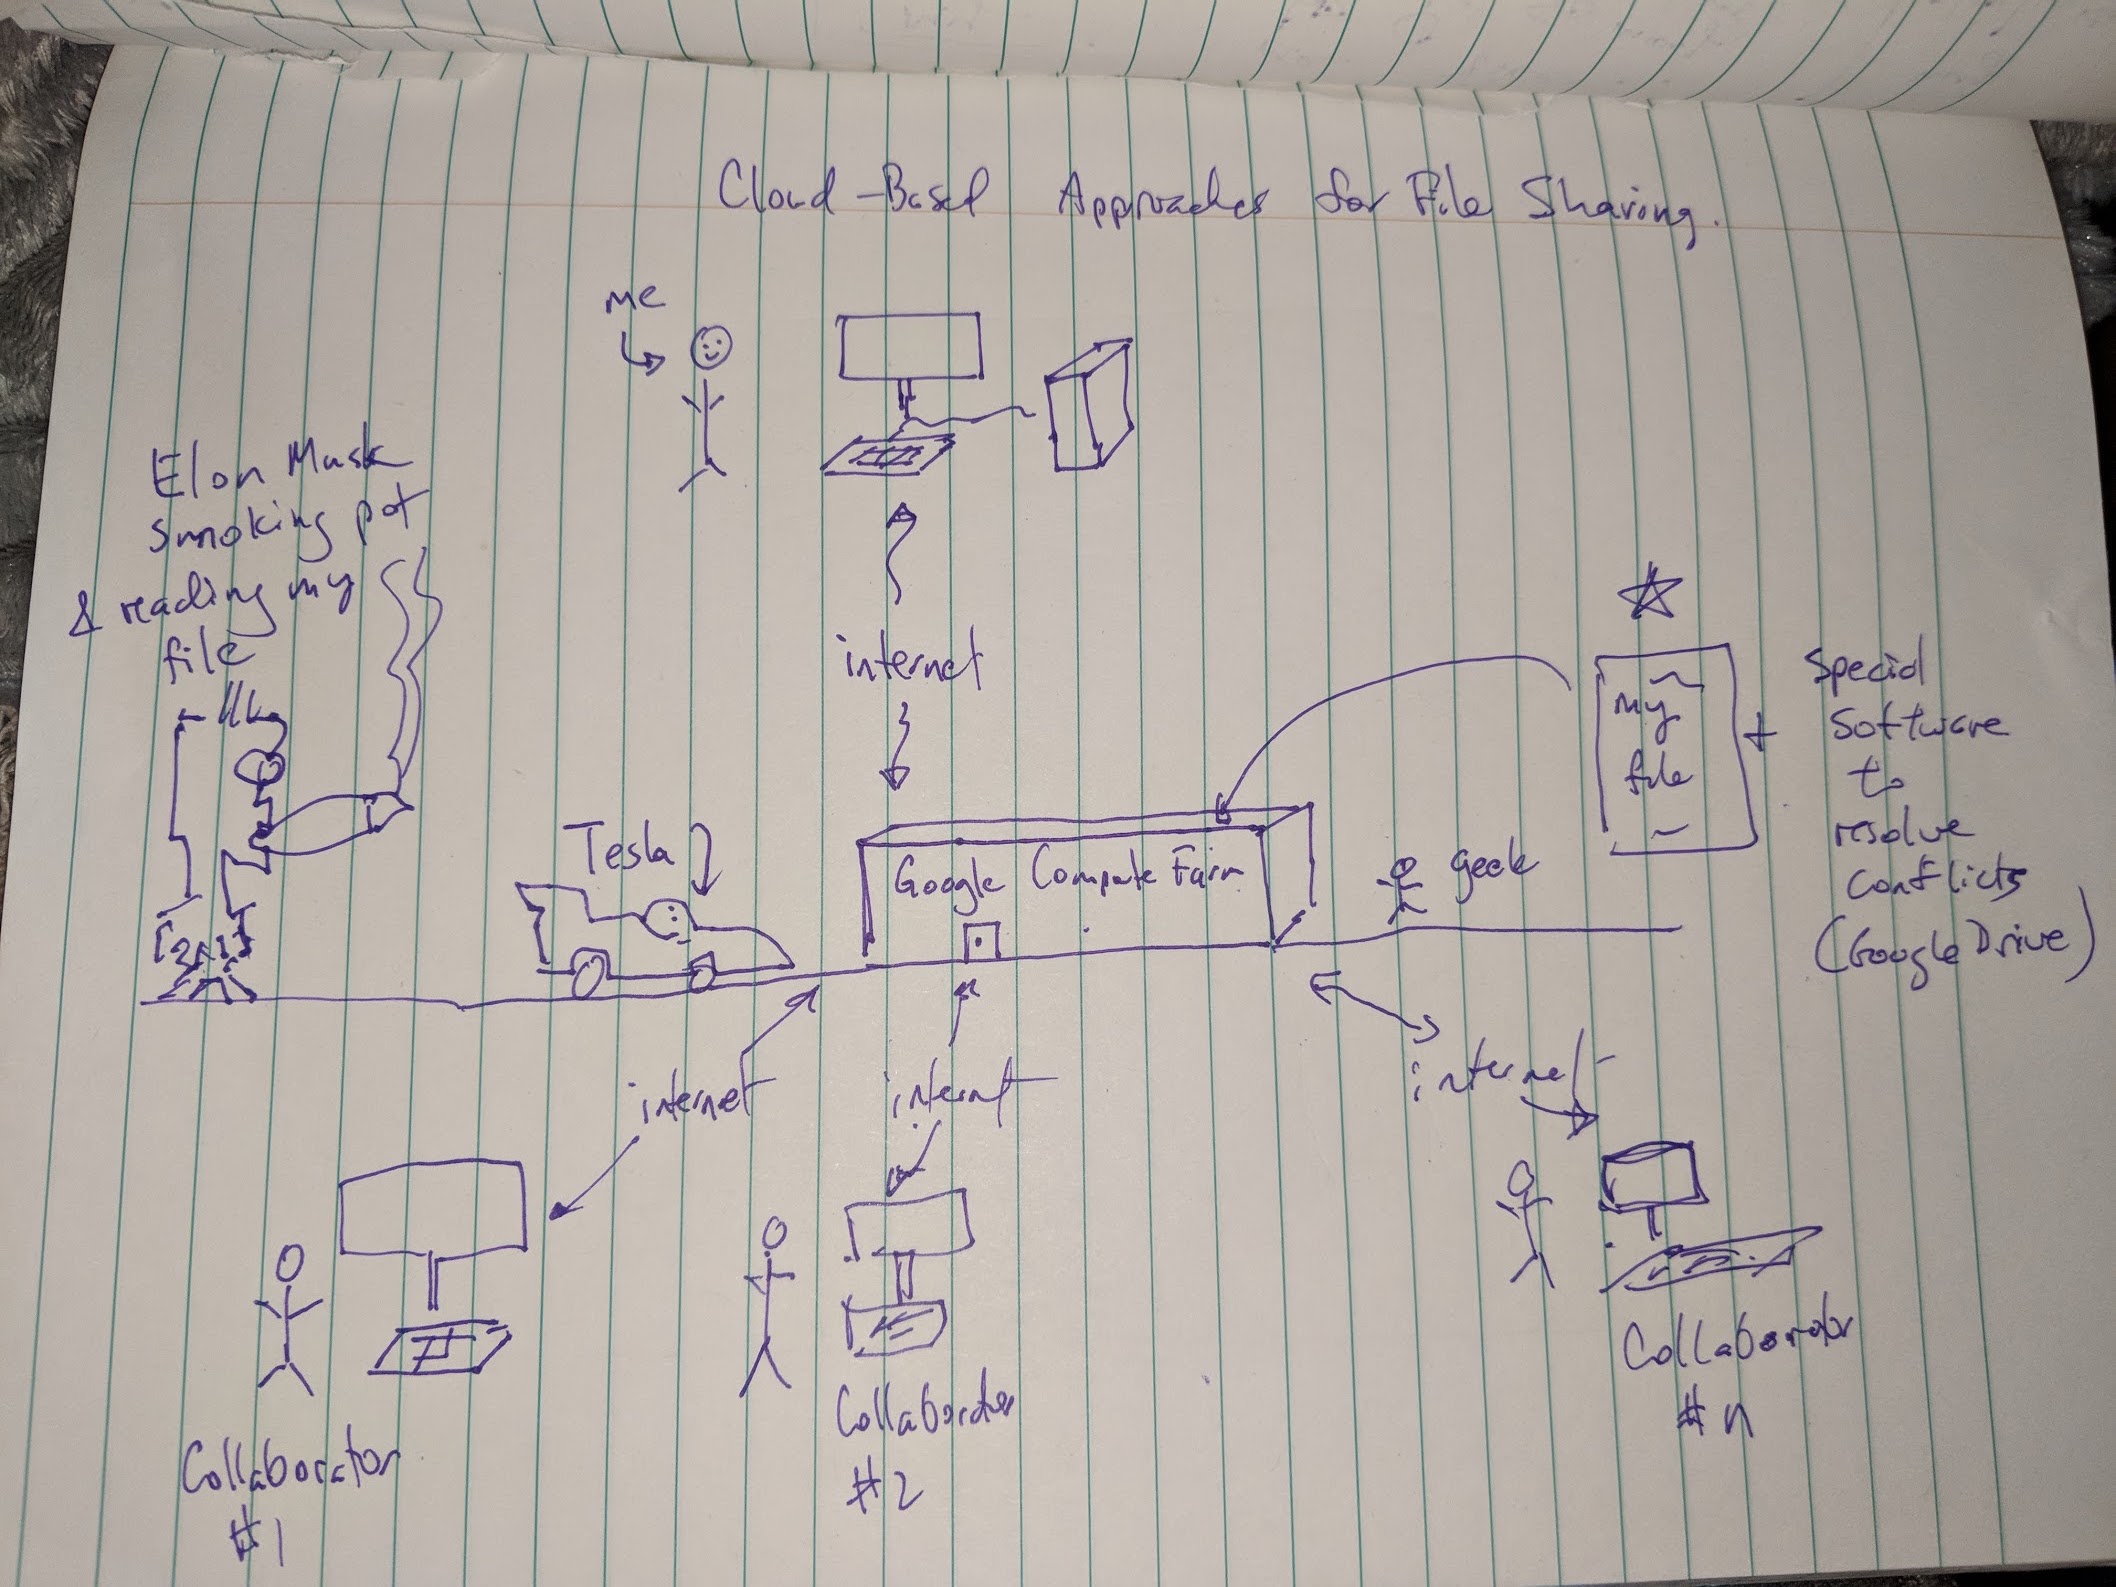 Cloud-Based Approaches for File Sharing.
me
Elon Musk
smoking pot
& reading my
file
internet
my
file
+
Special
Software
to
resolve
Conflicts
(Google Drive)
Tesla
Google Compute Farm
geek
internet
internt
internet
Collaborator
#1
Collaborator
#2
Collaborator
#n